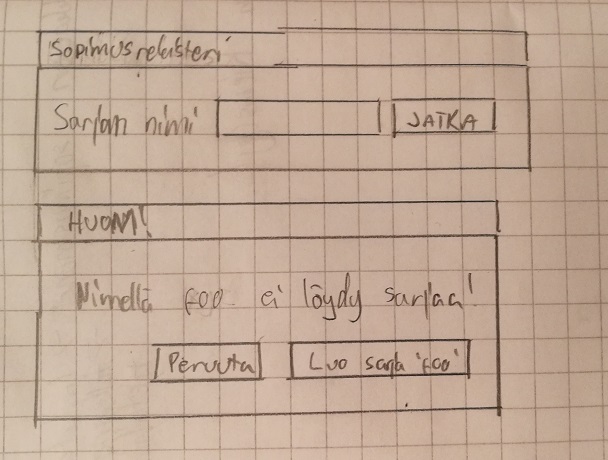 Sopimusrekisteri
Sarjan nimi JATKA
HUOM!
Nimellä foo ei löydy sarjaa!
Peruuta Luo sarja 'foo'